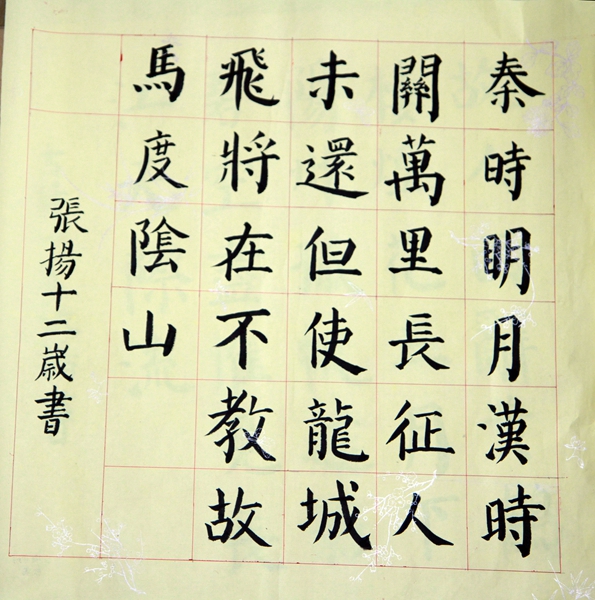 秦時明月漢時
關萬里長征人
未還但使龍城
飛將在不教故
馬度陰山
張揚十二歲書